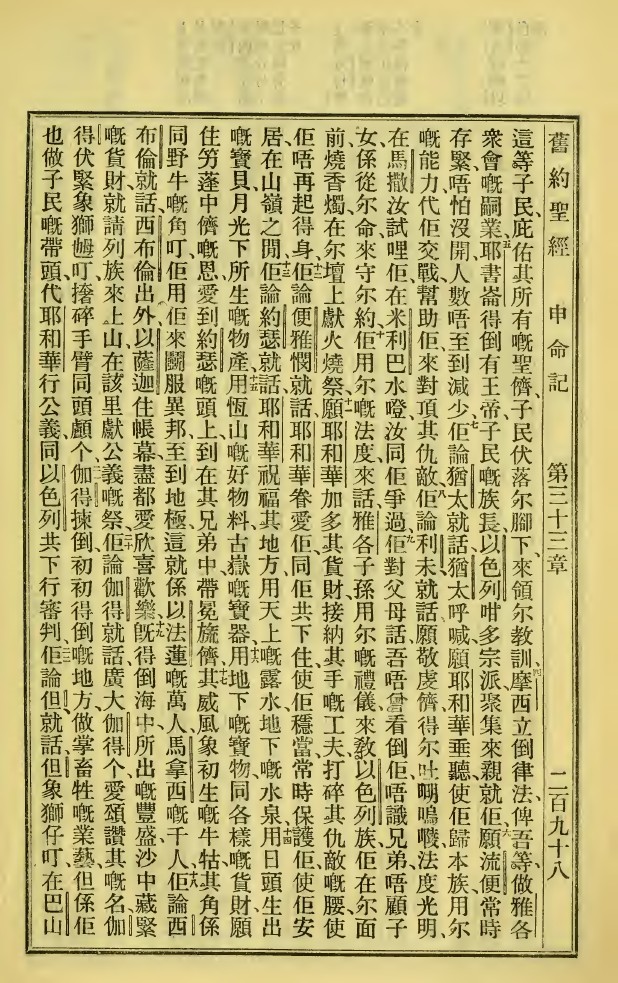 舊約聖經　申命記　第三十三章　二百九十八
這等子民、庇佑其所有嘅聖儕、子民伏落尔腳下、來領尔教訓、四摩西立倒律法、俾吾等做雅各
衆會嘅嗣業、五耶書崙得倒有王帝、子民嘅族長、以色列咁多宗派聚集來親就佢、六願流便常時
存緊、唔怕沒開、人數唔至到減少、七佢論猶太就話、猶太呼喊、願耶和華垂聽、使佢歸本族、用尔
嘅能力代佢交戰、幫助佢來對頂其仇敵、八佢論利未就話、願敬虔儕得尔吐𠵼嗚㘔、法度光明、
在馬撒汝試哩佢、在米利巴水嶝汝同佢爭過、九佢對父母話、吾唔曾看倒佢、唔識兄弟、唔顧子
女、係從尔命來守尔約、十佢用尔嘅法度來話雅各子孫、用尔嘅禮儀來敎以色列族、佢在尔面
前燒香燭、在尔壇上獻火燒祭、十一願耶和華加多其貨財、接納其手嘅工夫、打碎其仇敵嘅腰、使
佢唔再起得身、十二佢論便雅憫就話、耶和華眷愛佢、同佢共下住、使佢穩當、常時保護佢、使佢安
居在山嶺之間、十三佢論約瑟就話、耶和華祝福其地方、用天上嘅露水、地下嘅水泉、十四用日頭生出
嘅寶貝、月光下所生嘅物產、十五用恆山嘅好物料、古嶽嘅寶器、十六用地下嘅寶物、同各樣嘅貨財、願
住竻蓬中儕嘅恩愛到約瑟嘅頭上、到在其兄弟中帶冕旒儕、十七其威風象初生嘅牛牯、其角係
同野牛嘅角叮、佢用佢來鬭服異邦、至到地極、這就係以法蓮嘅萬人、馬拿西嘅千人、十八佢論西
布倫就話、西布倫出外、以薩迦住帳幕、盡都愛欣喜歡樂、十九旣得倒海中所出嘅豐盛、沙中藏緊
嘅貨財、就請列族來上山、在該里獻公義嘅祭、二十佢論伽得就話、廣大伽得个愛頌讚、其嘅名伽
得伏緊象獅乸叮、撦碎手臂同頭顱个、二一伽得揀倒初初得倒嘅地方、做掌畜牲嘅業藝、但係佢
也做子民嘅帶頭、代耶和華行公義、同以色列共下行審判、二二佢論但就話、但象獅仔叮、在巴山